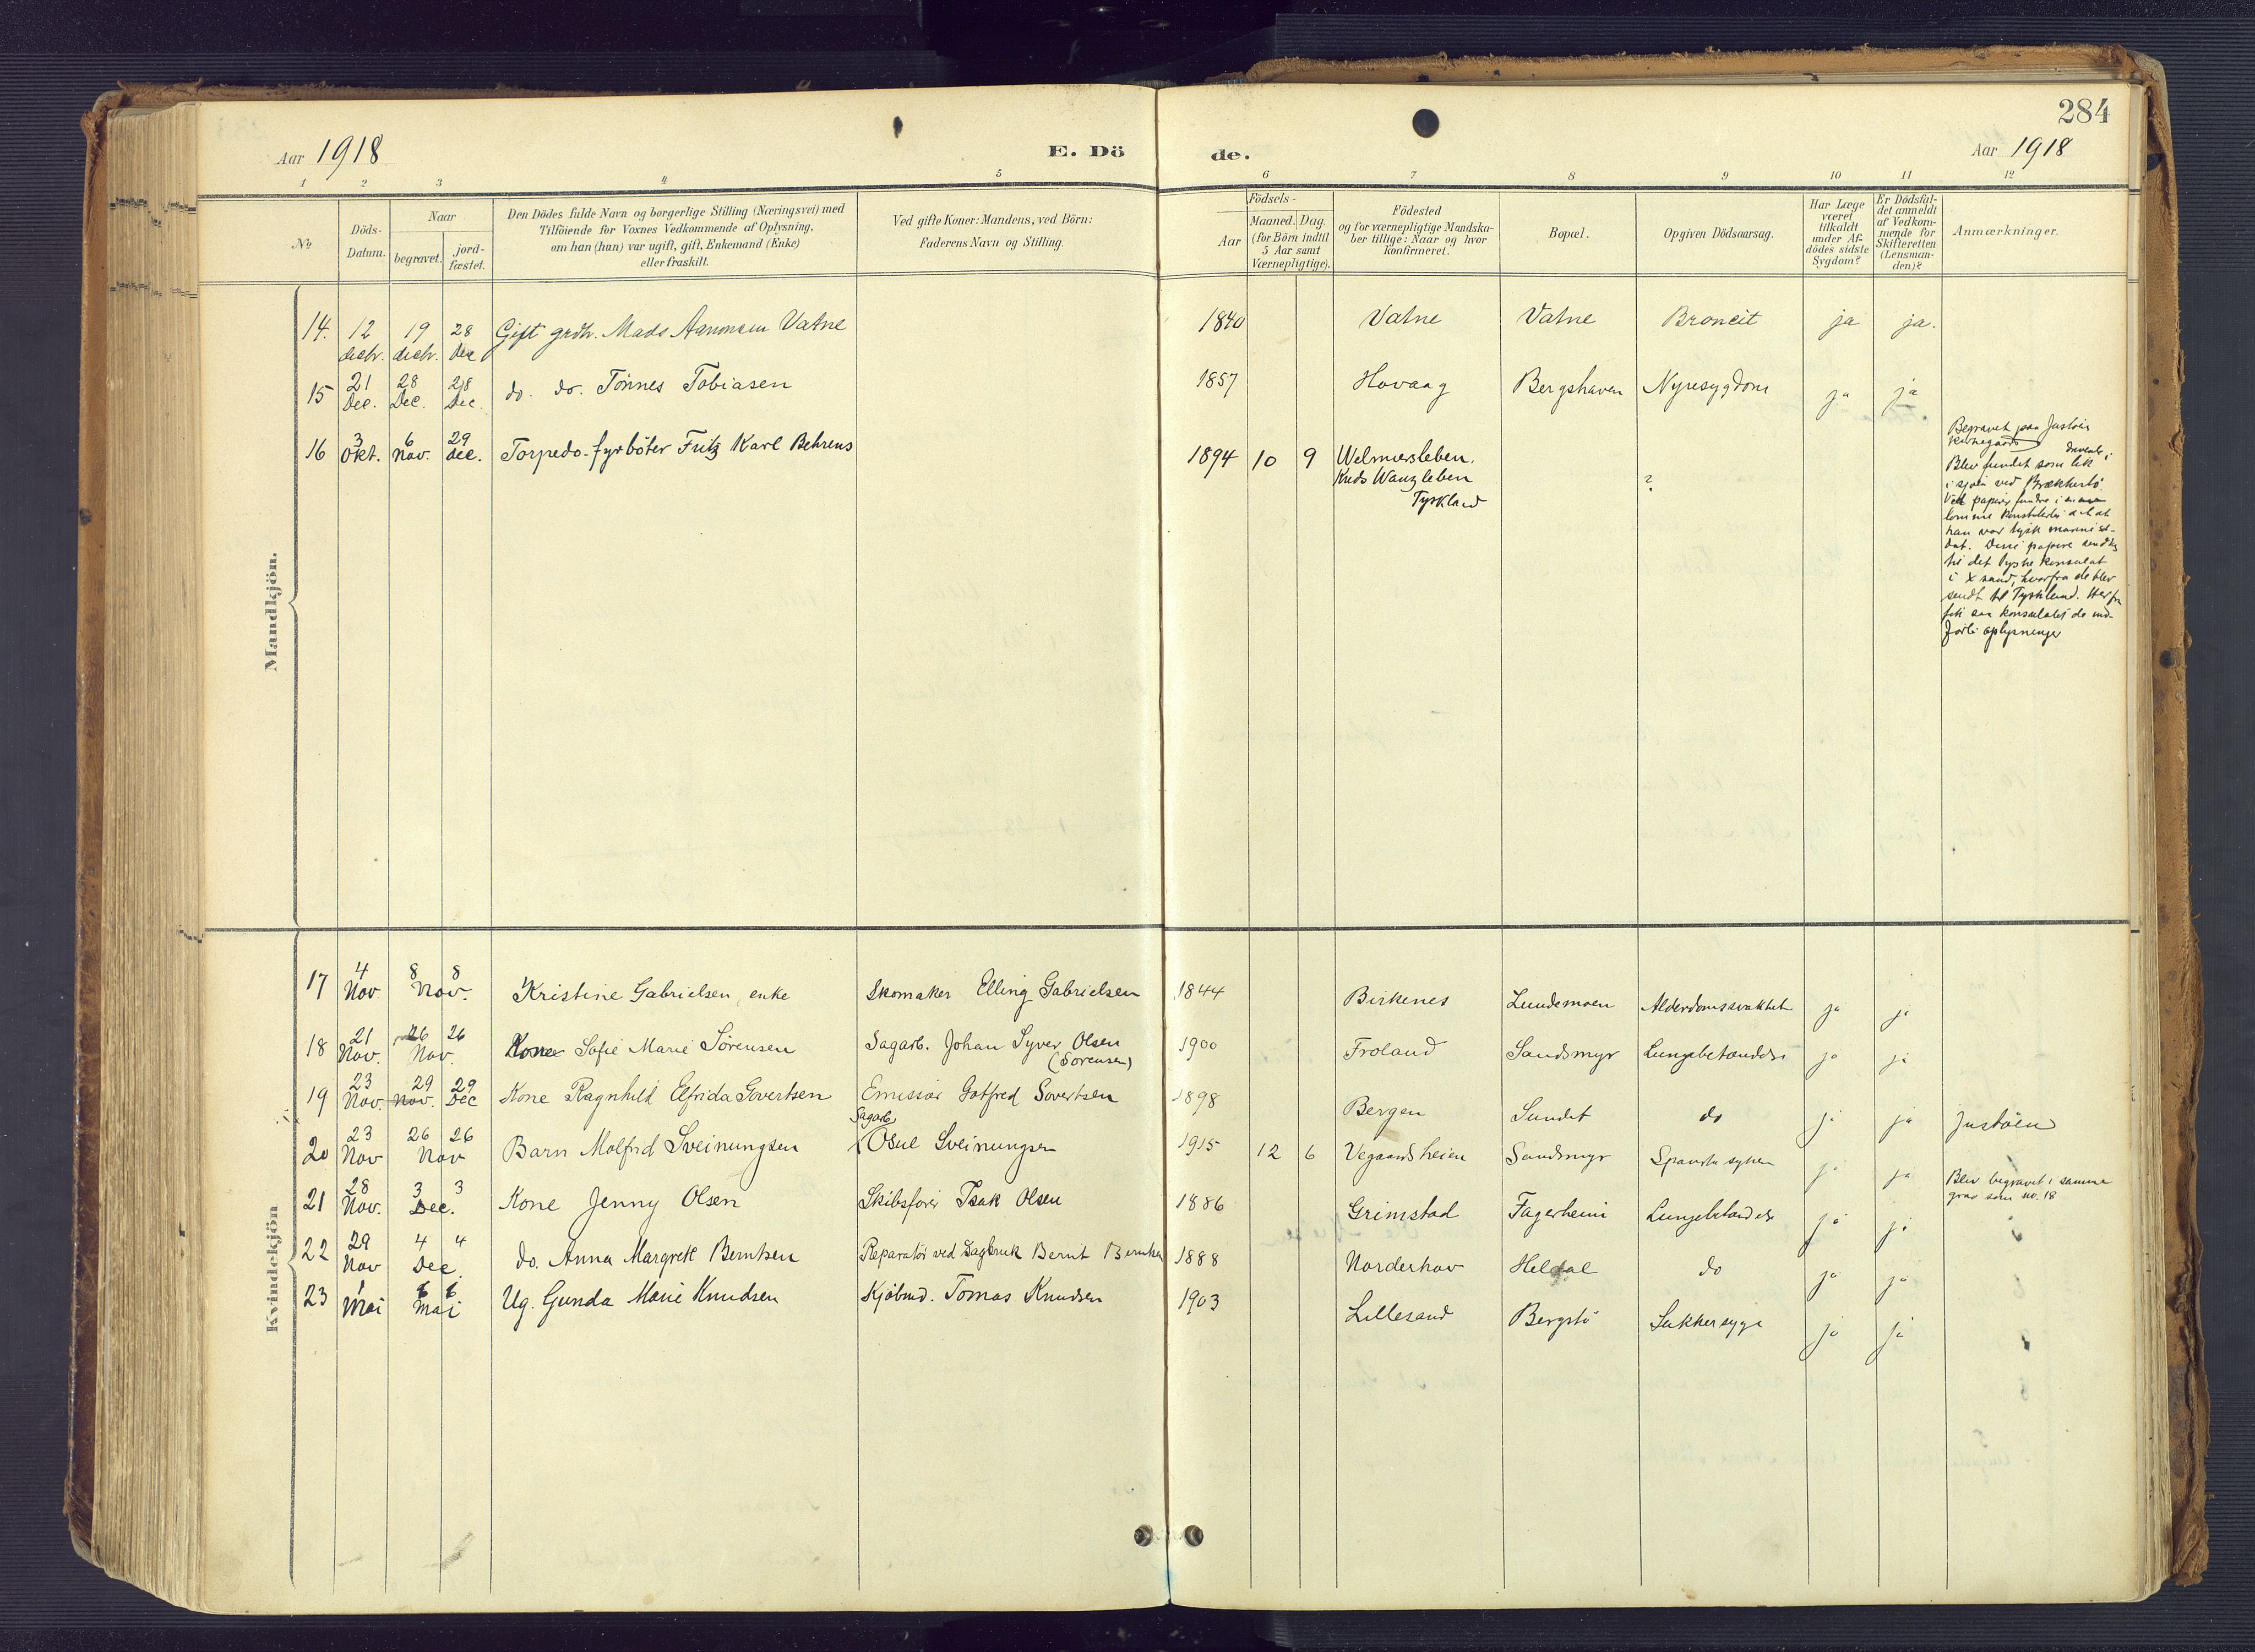 284
Aar 1918 E. Dö de. Aar 1918
1 2 3 4 5 6 7 8 9 10 11 12
No.
Döds-
Datum.
Naar
begravet.
jord-
fæstet.
Den Dödes fulde Navn og borgerlige Stilling (Næringsvei) med
Tilföiende for Voxnes Vedkommende af Oplysning,
om han (hun) var ugift, gift, Enkemand (Enke)
eller fraskilt.
Ved gifte Koner: Mandens, ved Börn:
Faderens Navn og Stilling.
Födsels-
Aar
Maaned. Dag.
(for Börn indtil
5 Aar samt
Værnepligtige).
Födested
og for værnepligtige Mandska-
ber tillige: Naar og hvor
konfirmeret.
Bopæl.
Opgiven Dödsaarsag.
Har Læge
været
tilkaldt
under Af-
dödes sidste
Sygdom?
Er Dödsfal-
det anmeldt
af Vedkom-
mende for
Skifteretten
(Lensman-
den)?
Anmærkninger.
Mandkjön.
14. 12 decbr. 19 decbr. 28 Dec Gift grdbr. Mads Aanonsen Vatne 1840 Vatne Vatne Broncit ja ja.
15 21 Dec. 28 Dec. 28 Dec. do. do. Tönnes Tobiasen 1857 Hovaag Bergshaven Nyresygdom ja ja
16 3 Okt. 6 Nov. 29 Dec. Torpedo-fyrböter Fritz Karl Behrens 1894 10 9 Welmersleben.
Kreds Wanzleben
Tyskland
?
Begravet paa Justöien
kirkegaard
Blev fundet som lik drivende
i sjøen ved Brækkestö.
Ved papirer fundne i
lomme konstatertes det at
han var tysk marinesol-
dat. Disse papirer sendtes
til det tyske konsulat
i Xsand, hvorfra de blev
sendt til Tyskland. Herfra
fik saa konsulatet de ind-
førte oplysninger
Kvindekjön
17 4 Nov 8 8 Nov. Kristine Gabrielsen, enke Skomaker Elling Gabrielsen 1844 Birkenes Lundemoen Alderdomssvakhet ja ja
18 21 Nov. 26 26 Nov. Kone Sofie Marie Sörensen Sagarb. Johan Syver Olsen
(Sörensen)
1900 Froland Sandsmyr Lungebetændelse ja ja
19 23 Nov. 29 Nov. 29 Dec Kone Ragnhild Elfrida Govertsen Emissær Gotfred Govertsen 1898 Bergen Sundet do ja ja Justöien
20 23 Nov 26 26 Nov Barn Molfrid Sveinungsen Sagarb. Osul Sveinungsen 1915 12 6 Vegaardsheien Sandsmyr Spanske syken ja ja Blev begravet i samme
grav som no. 18
21 28 Nov. 3 3 Dec. Kone Jenny Olsen Skibsförer Isak Olsen 1886 Grimstad Fagerheim Lungebetændelse ja ja
22 29 Nov 4 4 Dec. do. Anna Margrete Berntsen Reparatör ved Sagbruk Bernt Berntsen 1888 Norderhov Heldal do ja ja
23 1 Mai 6 6 Mai Ug. Gunda Marie Knudsen Kjöbmd. Tomas Knudsen 1903 Lillesand Bergstö Sukkersyge ja ja